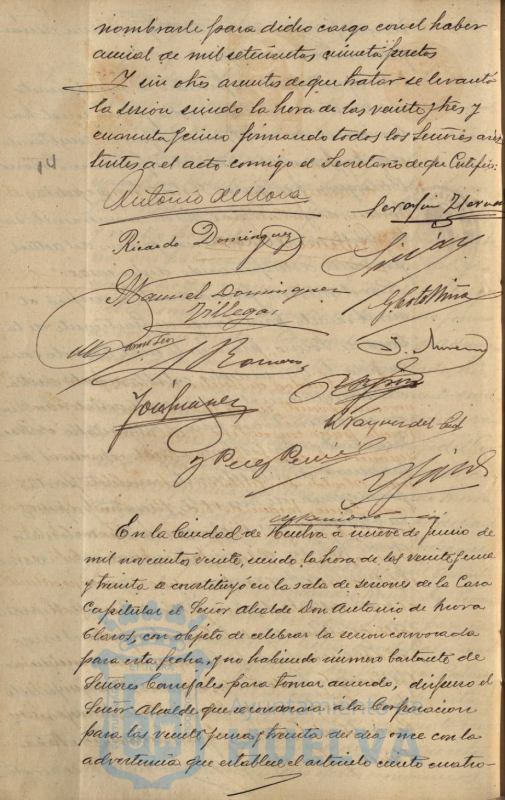 nombrarle para dicho cargo con el haber
anual de mil setecientas cincuenta pesetas
Y sin otros asuntos de que tratar se levantó
la sesión siendo la hora de las veinte y tres y
cuarenta y cinco firmando todos los Señores asis-
tentes a el acto comigo el Secretario de que Certifico:
14
Antonio de Mora
Serafin
Ricardo Dominguez
Manuel Dominguez
Villegas
J. Moreno
Romero
José Suarez
Vazquez del Cid
y Perez
En la Ciudad de Huelva á nueve de junio de
mil novecientos veinte, siendo la hora de las veinte y una
y treinta se constituyó en la sala de sesiones de la Casa
Capitular el Señor Alcalde Don Antonio de Mora
Claros, con objeto de celebrar la sesion convocada
para esta fecha, y no habiendo número bastante de
Señores Concejales para tomar acuerdo, dispuso el
Señor Alcalde que se convocara á la Corporacion
para las veinte y una y treinta del dia once con la
advertencia que establece el artículo ciento cuatro-
HUELVA